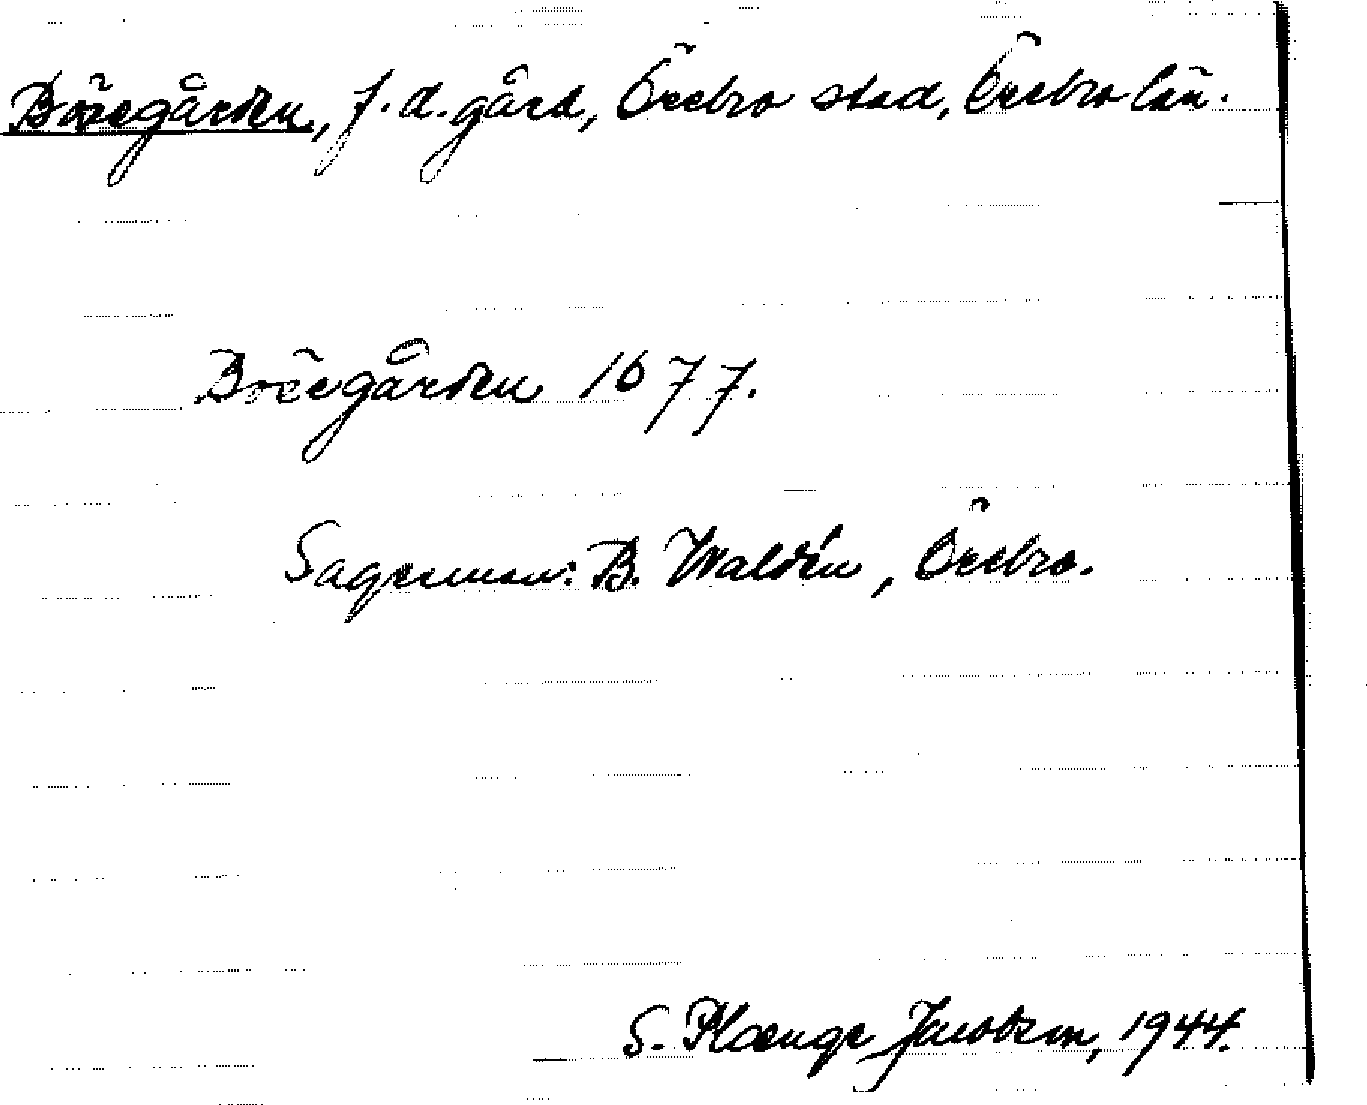 Börregården, f.d. gård, Örebro stad, Örebro län.
Börregården 1677.
Sagesman: B. Waldén, Örebro.
S. Plænge Jacobson, 1944.